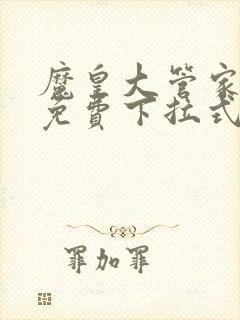 魔皇大管家
免費下拉式
罪加罪